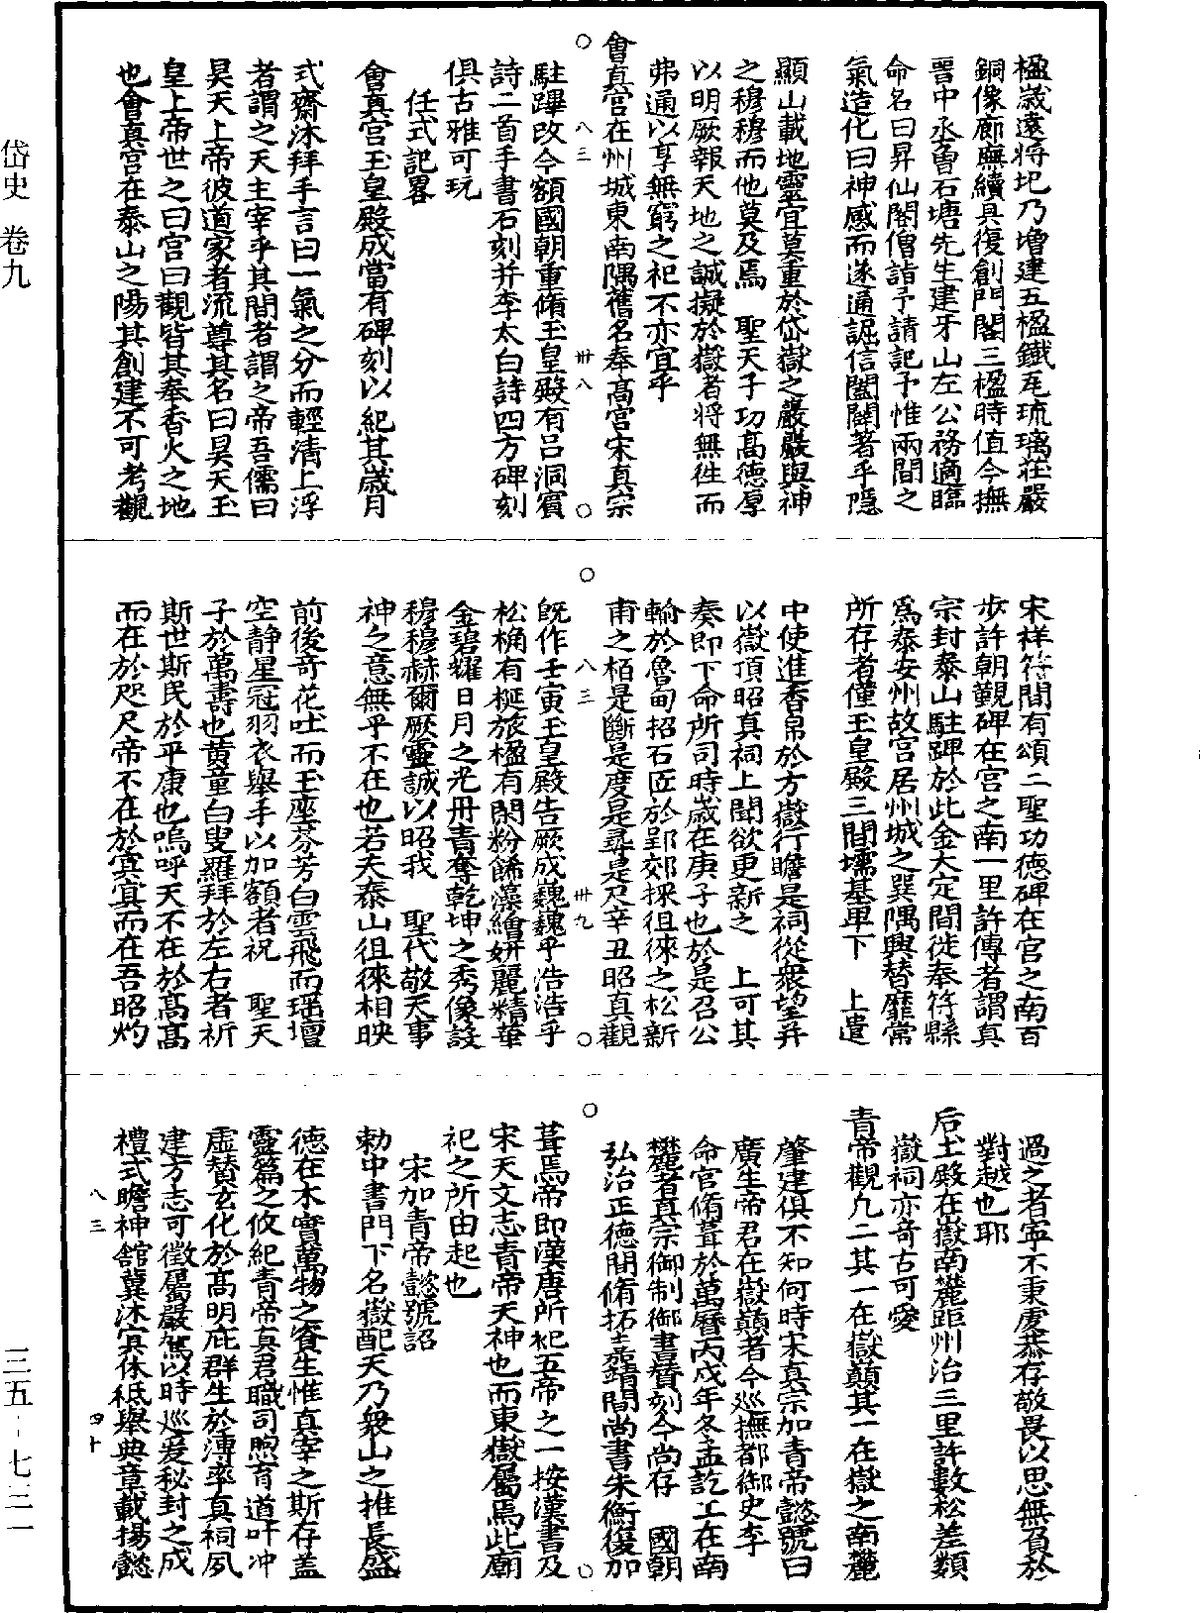 楹歲遠將圮乃增建五楹鐵瓦琉璃莊嚴
銅像廊廡續具復創門閣三楹時值今撫
晉中丞魯石塘先生建牙山左公務適臨
命名曰昇仙閣僧詣予請記予惟兩間之
氣造化曰神感而遂通詘信闔闢著乎隱
顯山載地靈宜莫重於岱嶽之嚴嚴與神
之穆穆而他莫及焉　聖天子功高德厚
以明厥報天地之誠擬於嶽者將無徃而
弗通以享無窮之祀不亦宜乎
會真宮在州城東南隅舊名奉高宮宋真宗
駐蹕改今額國朝重脩玉皇殿有呂洞賓
詩二首手書石刻并李太白詩四方碑刻
俱古雅可玩
任式記畧
會真宮玉皇殿成當有碑刻以紀其歲月
式齋沐拜手言曰一氣之分而輕清上浮
者謂之天主宰乎其間者謂之帝吾儒曰
昊天上帝彼道家者流尊其名曰昊天玉
皇上帝世之曰宮曰觀皆其奉香火之地
也會真宮在泰山之陽其創建不可考觀
宋祥符間有頌二聖功德碑在宮之南百
步許朝覲碑在宮之南一里許傳者謂真
宗封泰山駐蹕於此金大定間徙奉符縣
爲泰安州故宮居州城之巽隅興替靡常
所存者僅玉皇殿三間壖基軍下　上遣
中使進香帛於方嶽行瞻是祠從衆望并
以嶽頂昭真祠上聞欲更新之　上可其
奏即下命所司時歲在庚子也於是召公
輸於魯甸招石匠於郢郊採徂徠之松新
甫之栢是斷是度是尋是尺辛丑昭真觀
旣作壬寅玉皇殿告厥成巍巍乎浩浩乎
松桷有梴旅楹有閑粉餙藻繪姸麗精華
金碧耀日月之光丹青奪乾坤之秀像設
穆穆赫爾厥靈誠以昭我　聖代敬天事
神之意無乎不在也若夫泰山徂徠相映
前後竒花吐而玉座芬芳白雲飛而瑶壇
空靜星冠羽衣舉手以加額者祝　聖天
子於萬壽也黄童白叟羅拜於左右者祈
斯世斯民於平康也嗚呼天不在於髙髙
而在於咫尺帝不在於冥冥而在吾昭灼
過之者寧不秉虔恭存敬畏以思無負於
對越也耶
后土殿在嶽南麓距州治三里許數松差類
嶽祠亦竒古可愛
青帝觀凡二其一在嶽巔其一在嶽之南麓
肇建俱不知何時宋真宗加青帝懿號曰
廣生帝君在嶽巔者今廵撫都御史李
命官脩葺於萬曆丙戌年冬孟訖工在南
麓者真宗御制御書贊刻今尚存　國朝
弘治正德間脩拓嘉靖間尚書朱衡復加
葺焉帝即漢唐所祀五帝之一按漢書及
宋天文志青帝天神也而東嶽屬焉此廟
祀之所由起也
宋加青帝懿號詔
勅中書門下名嶽配天乃衆山之推長盛
德在木實萬物之資生惟真宰之斯存盖
靈篇之攸紀青帝真君職司煦育道叶冲
虛賛玄化於高明庇群生於溥率真祠夙
建方志可徵屬嚴駕以時廵爰秘封之成
禮式瞻神舘冀沐㝠休祗舉典章載揚懿
八三
卅八
八三
卅九
八三
四十
岱史　卷九
三五-七三一